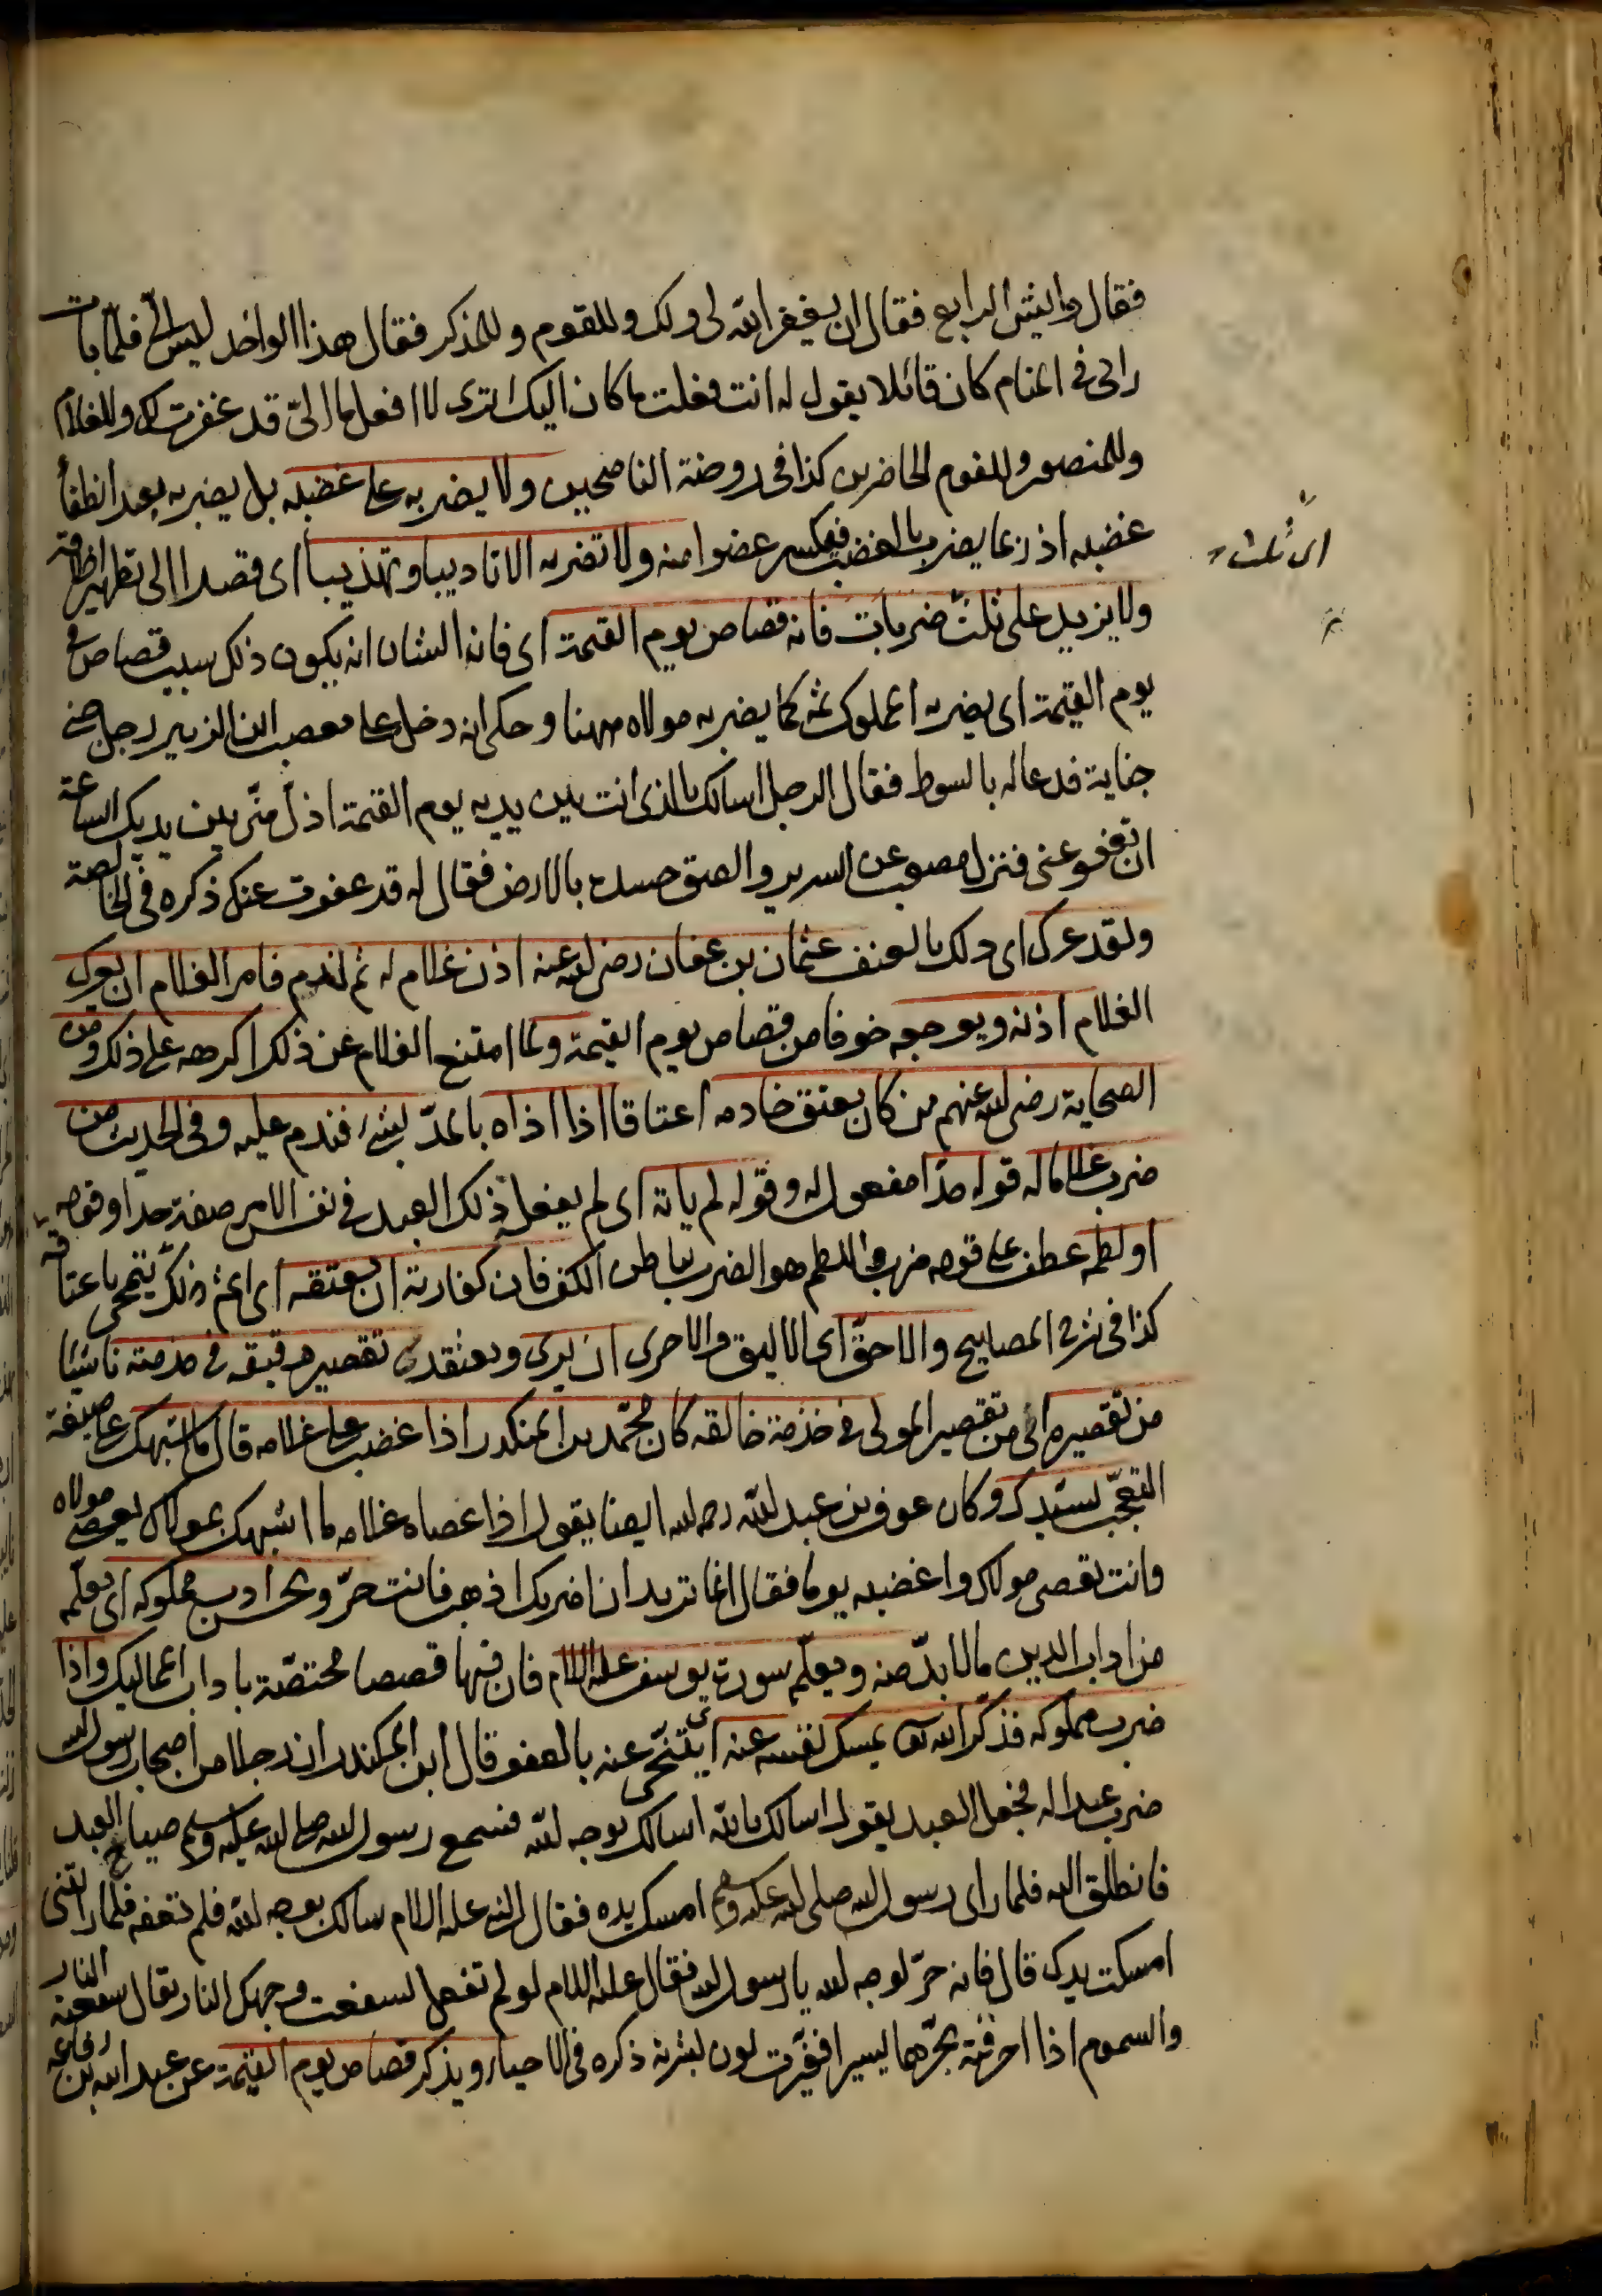 فقال وايش الرابع فقال ان يغفر الله لى ولك وللقوم وللمذكر فقال هذا الواحد ليس الىّ فلما بات
راى فى المنام كان قائلا يقول له انت فعلت ما كان اليك اترى لا افعل ما الىّ قد غفرت لك وللغلام
وللمنصور وللقوم الحاضرين كذا فى روضة الناصحين ولا يضربه على غضبه بل يضربه بعد انطفأ
غضبه اذ ربما يضرب بالغضب فيكسر عضوا منه ولا تضربه الا تاديبا وتهذيبا اى قصدا الى تطهير اخلاقه
ولا يزيد على ثلث ضربات فانه قصاص يوم القيمة اى فانه الشان انه يكون ذلك سبب قصاص
اى ثلث
يوم القيمة اى يضربه المملوك ثمه كما يضربه مولاه ههنا وحكى انه دخل على مصعب ابن الزبير رجل جنى
جناية فدعا له بالسوط فقال الرجل اسالك بالذى انت بين يديه يوم القيمة اذلّ منّى بين يديك الساعة
ان تعفو عنى فنزل مصعب عن السرير والصق خده بالارض فقال له قد عفوت عنك ذكره فى الخالصة
ولقد عرك اى دلك بالعنف عثمان بن عفان رضى الله عنه اذن غلام له ثم ندم فامر الغلام ان يعرك
الغلام اذنه ويوجعه خوفا من قصاص يوم القيمة ولما امتنع الغلام عن ذلك اكرهه على ذلك ومن
الصحابة رضى الله عنهم من كان يعتق خادمه اعتاقا اذا اذاه بالمدّ بشئ فندم عليه وفى الحديث من
ضرب غلاما له قوله حدّا مفعول له وقوله لم ياته اى لم يفعل ذلك العبد فى نفس الامر صفة حدا وقوله
او لطمه عطف على قوله ضرب واللطم هو الضرب بباطن الكف فان كفارته ان يعتقه اى اثم ذلك يتمحى باعتاقه
كذا فى شرح المصابيح والاحقّ اى الاليق والاحرى ان يرى ويعتقد تقصير رقيقه فى خدمته ناشئا
من تقصيره اى من تقصير المولى فى خدمة خالقه كان محمّد بن المنكدر اذا غضب على غلامه قال ما اشبهك على صيغة
التعجّب بسيّدك وكان عوف بن عبد الله رحمه الله ايضا يقول اذا عصاه غلامه ما اشبهك بمولاك يعصى مولاه
وانت تعصى مولاك واغضبه يوما فقال انما تريد ان اضربك اذهب فانت حرّ ويحسن ادب مملوكه اى يعلّمه
من اداب الدين ما لا بدّ منه ويعلّم سورة يوسف عليه السلام فان فيها قصصا مختصّة باداب المماليك واذا
ضرب مملوكه فذكر الله تعالى يمسك نفسه عنه اى يتنحّى عنه بالعفو قال ابن المكندر ان رجلا من اصحاب رسول الله
ضرب عبدا له فجعل العبد يقول اسالك بالله اسالك بوجه الله فسمع رسول الله صلى الله عليه وسلم صياح العبد
فانطلق اليه فلما راى رسول الله صلى الله عليه وسلم امسك يده فقال النبى عليه السلام سالك بوجه الله فلم تعفه فلما راتنى
امسكت يدك قال فانه حرّ لوجه الله يا رسول الله فقال عليه السلام لو لم تفعل لسفعت وجهك النار يقال سفعته النار
والسموم اذا احرقته بحرّها يسيرا فغيّرت لون بشرته ذكره فى الاحياء ويذكر قصاص يوم القيمة عن عبد الله بن رفاعه